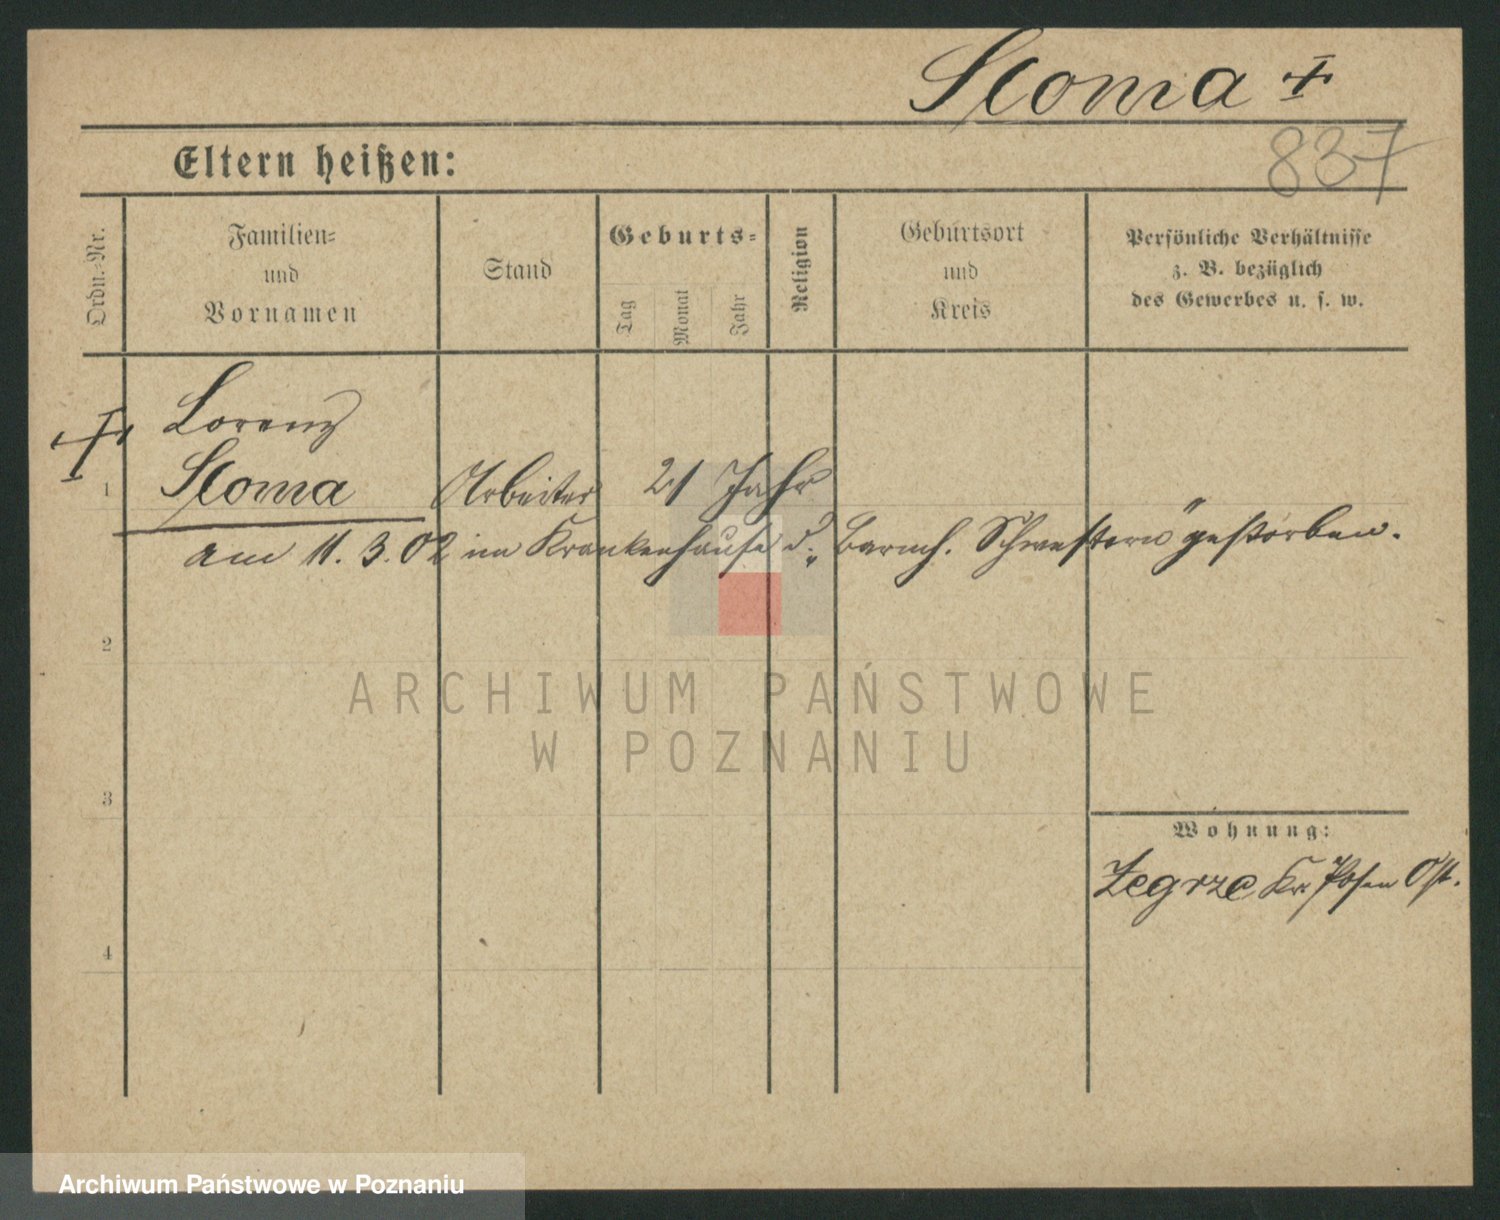 Sloma +
837
Eltern heißen:
Ordn.-Nr.
Familien-
und
Vornamen
Stand
Geburts-
Tag
Monat
Jahr
Religion
Geburtsort
und
Kreis
Persönliche Verhältnisse
z. B. bezüglich
des Gewerbes u. s. w.
+ Lorenz
1 Sloma Arbeiter 21 Jahr
am 11. 3. 02 im Krankenhause d. „Barmh. Schwestern“ gestorben.
2
3
4
Wohnung:
Zegrze Kr. Posen Ost.
ARCHIWUM PAŃSTWOWE
W POZNANIU
Archiwum Państwowe w Poznaniu